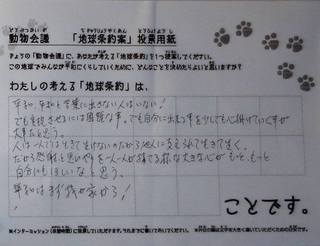 動物会議 「地球条約案」投票用紙
きょうの「動物会議」に、あなたが考える「地球条約」を1つ提案してください。
この地球でみんなが平和にくらしていくために、どんなことを決めたらよいと思いますか?
わたしの考える、「地球条約」は、
平和、平和と言葉に出さない人はいない!
でも実現させるには困難な事。でも自分に出来る事を少しでも心掛けていく事が
大事だと思う。
人は一人では生きて生けないのだから他人に支えられて生きて生く。
だから感謝と思いやりを一人一人が持てる様な大きな心が もっと、もっと
自分にもほしいなと思う。
平和はまず我が家から!
ことです。
※インターミッション(休憩時間)に